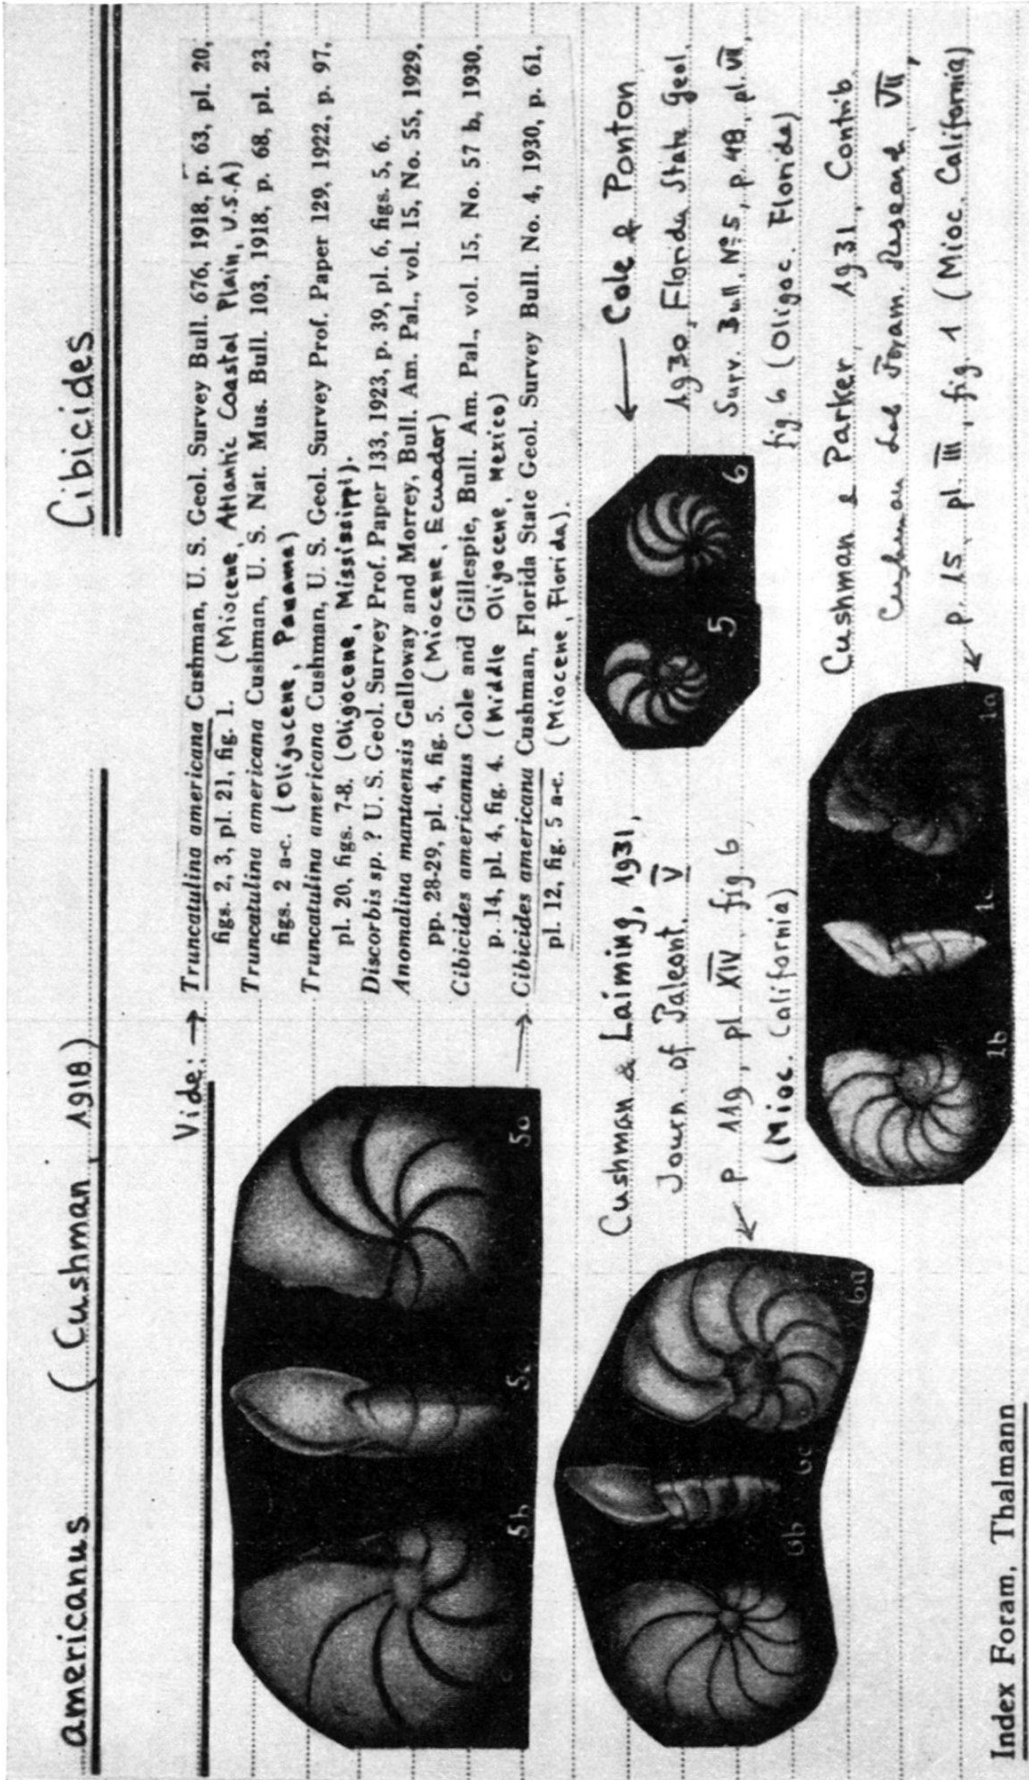 americanus (Cushman, 1918) Cibicides
Vide: → Truncatulina americana Cushman, U. S. Geol. Survey Bull. 676, 1918, p. 63, pl. 20,
figs. 2, 3, pl. 21, fig. 1. (Miocene, Atlantic Coastal Plain, U.S.A)
Truncatulina americana Cushman, U. S. Nat. Mus. Bull. 103, 1918, p. 68, pl. 23,
figs. 2 a-c. (Oligocene, Panama)
Truncatulina americana Cushman, U. S. Geol. Survey Prof. Paper 129, 1922, p. 97,
pl. 20, figs. 7-8. (Oligocene, Mississippi).
Discorbis sp. ? U. S. Geol. Survey Prof. Paper 133, 1923, p. 39, pl. 6, figs. 5, 6.
Anomalina mantaensis Galloway and Morrey, Bull. Am. Pal., vol. 15, No. 55, 1929,
pp. 28-29, pl. 4, fig. 5. (Miocene, Ecuador)
Cibicides americanus Cole and Gillespie, Bull. Am. Pal., vol. 15, No. 57 b, 1930,
p. 14, pl. 4, fig. 4. (Middle Oligocene, Mexico)
→ Cibicides americana Cushman, Florida State Geol. Survey Bull. No. 4, 1930, p. 61,
pl. 12, fig. 5 a-c. (Miocene, Florida).
5b 5c 5a
5 6
← Cole & Ponton
1930, Florida State Geol.
Surv. Bull. No 5, p. 48, pl. VII,
fig 6 (Oligoc. Florida)
Cushman & Laiming, 1931,
Journ. of Paleont. V
← p 119, pl XIV fig 6
(Mioc. California)
6b 6c 6a
Cushman & Parker, 1931, Contrib
Cushman Lab Foram. Research VII,
← p. 15 pl. III, fig. 1 (Mioc. California)
1b 1c 1a
Index Foram, Thalmann